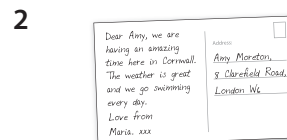 2
Dear Amy, we are
having an amazing
time here in Cornwall.
The weather is great
and we go swimming
every day.
Love from
Maria. xxx
Address:
Amy Moreton,
8 Clarefield Road,
London W6